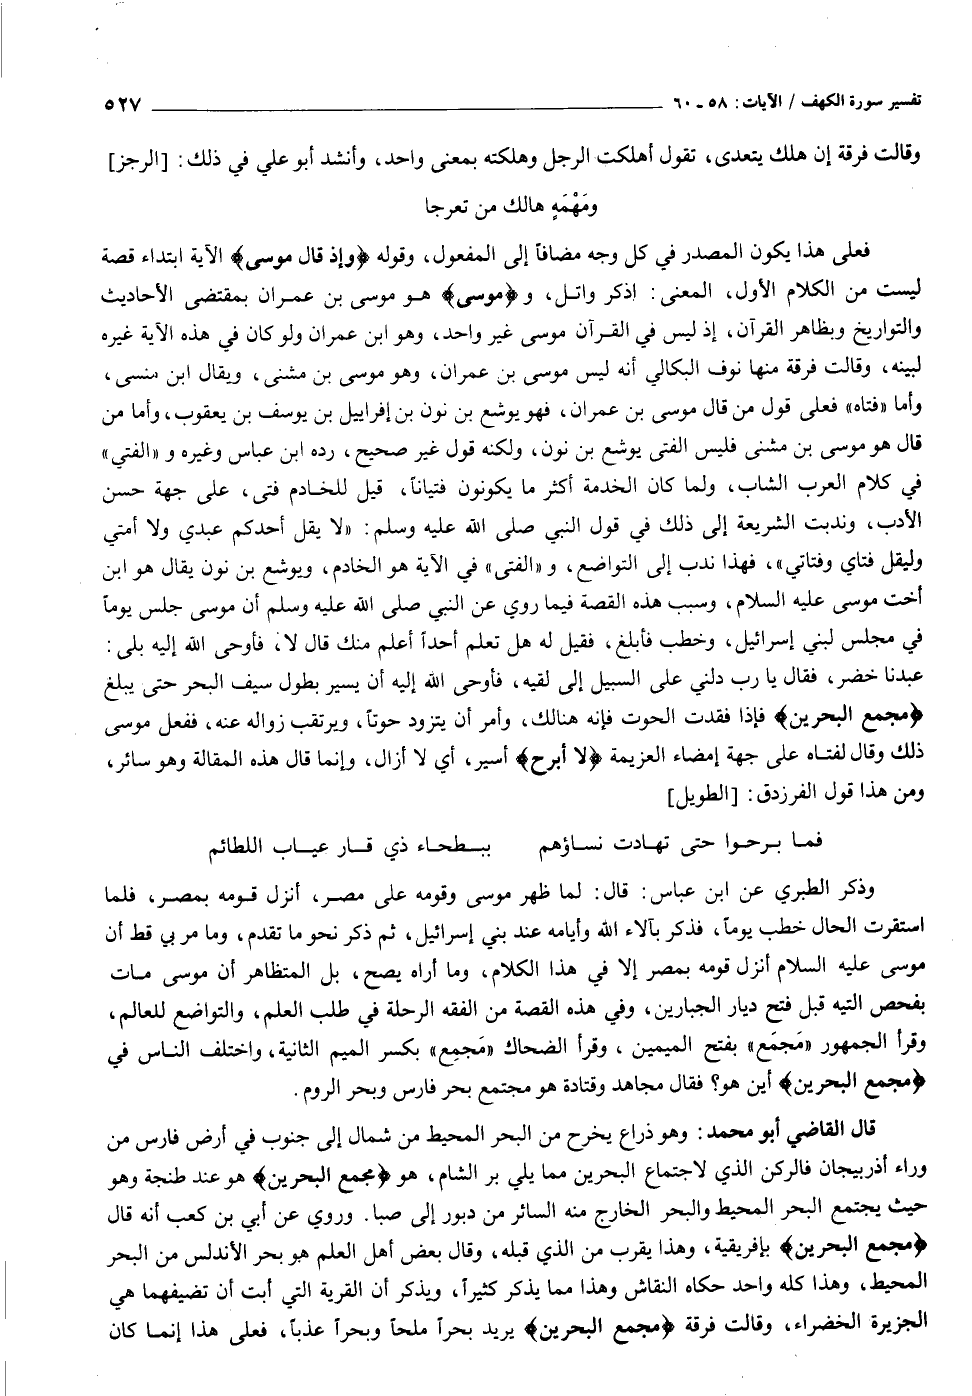 تفسير سورة الكهف / الآيات : ٥٨ ـ ٦٠ ٥٢٧
وقالت فرقة إن هلك يتعدى، تقول أهلكت الرجل وهلكته بمعنى واحد، وأنشد أبو علي في ذلك : [الرجز]
ومَهْمَهٍ هالك من تعرجا
فعلى هذا يكون المصدر في كل وجه مضافاً إلى المفعول، وقوله ﴿وإذ قال موسى﴾ الآية ابتداء قصة
ليست من الكلام الأول، المعنى: اذكر واتل، و﴿موسى﴾ هـو موسى بن عمـران بمقتضى الأحاديث
والتواريخ وبظاهر القرآن، إذ ليس في القـرآن موسى غير واحد، وهو ابن عمران ولو كان في هذه الآية غيره
لبينه، وقالت فرقة منها نوف البكالي أنه ليس موسى بن عمران، وهو موسى بن مشنى، ويقال ابن منسى،
وأما «فتاه» فعلى قول من قال موسى بن عمران، فهو يوشع بن نون بن إفراييل بن يوسف بن يعقوب، وأما من
قال هو موسى بن مشنى فليس الفتى يوشع بن نون، ولكنه قول غير صحيح، رده ابن عباس وغيره و «الفتى»
في كلام العرب الشاب، ولما كان الخدمة أكثر ما يكونون فتياناً، قيل للخـادم فتى، على جهة حسن
الأدب، وندبت الشريعة إلى ذلك في قول النبي صلى الله عليه وسلم: «لا يقل أحدكم عبدي ولا أمتي
وليقل فتاي وفتاتي»، فهذا ندب إلى التواضع، و «الفتى» في الآية هو الخادم، ويوشع بن نون يقال هو ابن
أخت موسى عليه السلام، وسبب هذه القصة فيما روي عن النبي صلى الله عليه وسلم أن موسى جلس يوماً
في مجلس لبني إسرائيل، وخطب فأبلغ، فقيل له هل تعلم أحداً أعلم منك قال لا، فأوحى الله إليه بلى:
عبدنا خضر، فقال يا رب دلني على السبيل إلى لقيه، فأوحى الله إليه أن يسير بطول سيف البحر حتى يبلغ
﴿مجمع البحرين﴾ فإذا فقدت الحوت فإنه هنالك، وأمر أن يتزود حوتاً، ويرتقب زواله عنه، ففعل موسى
ذلك وقال لفتـاه على جهة إمضاء العزيمة ﴿لا أبرح﴾ أسير، أي لا أزال، وإنما قال هذه المقالة وهو سائر،
ومن هذا قول الفرزدق: [الطويل]
فمـا بـرحـوا حتى تهـادت نسـاؤهم ببـطحـاء ذي قـار عيـاب اللطائم
وذكر الطبري عن ابن عباس: قال: لما ظهر موسى وقومه على مصـر، أنزل قـومه بمصـر، فلما
استقرت الحال خطب يوماً، فذكر بآلاء الله وأيامه عند بني إسرائيل، ثم ذكر نحو ما تقدم، وما مر بي قط أن
موسى عليه السلام أنزل قومه بمصر إلا في هذا الكلام، وما أراه يصح، بل المتظاهر أن موسى مـات
بفحص التيه قبل فتح ديار الجبارين، وفي هذه القصة من الفقه الرحلة في طلب العلم، والتواضع للعالم،
وقرأ الجمهور «مَجمَع» بفتح الميمين ، وقرأ الضحاك «مَجمِع» بكسر الميم الثانية، واختلف النـاس في
﴿مجمع البحرين﴾ أين هو؟ فقال مجاهد وقتادة هو مجتمع بحر فارس وبحر الروم .
قال القاضي أبو محمد: وهو ذراع يخرج من البحر المحيط من شمال إلى جنوب في أرض فارس من
وراء أذربيجان فالركن الذي لاجتماع البحرين مما يلي بر الشام، هو ﴿مجمع البحرين﴾ هو عند طنجة وهو
حيث يجتمع البحر المحيط والبحر الخارج منه السائر من دبور إلى صبا. وروي عن أبي بن كعب أنه قال
﴿مجمع البحرين﴾ بإفريقية، وهذا يقرب من الذي قبله، وقال بعض أهل العلم هو بحر الأندلس من البحر
المحيط، وهذا كله واحد حكاه النقاش وهذا مما يذكر كثيراً، ويذكر أن القرية التي أبت أن تضيفهما هي
الجزيرة الخضراء، وقالت فرقة ﴿مجمع البحرين﴾ يريد بحراً ملحاً وبحراً عذباً، فعلى هذا إنمـا كان